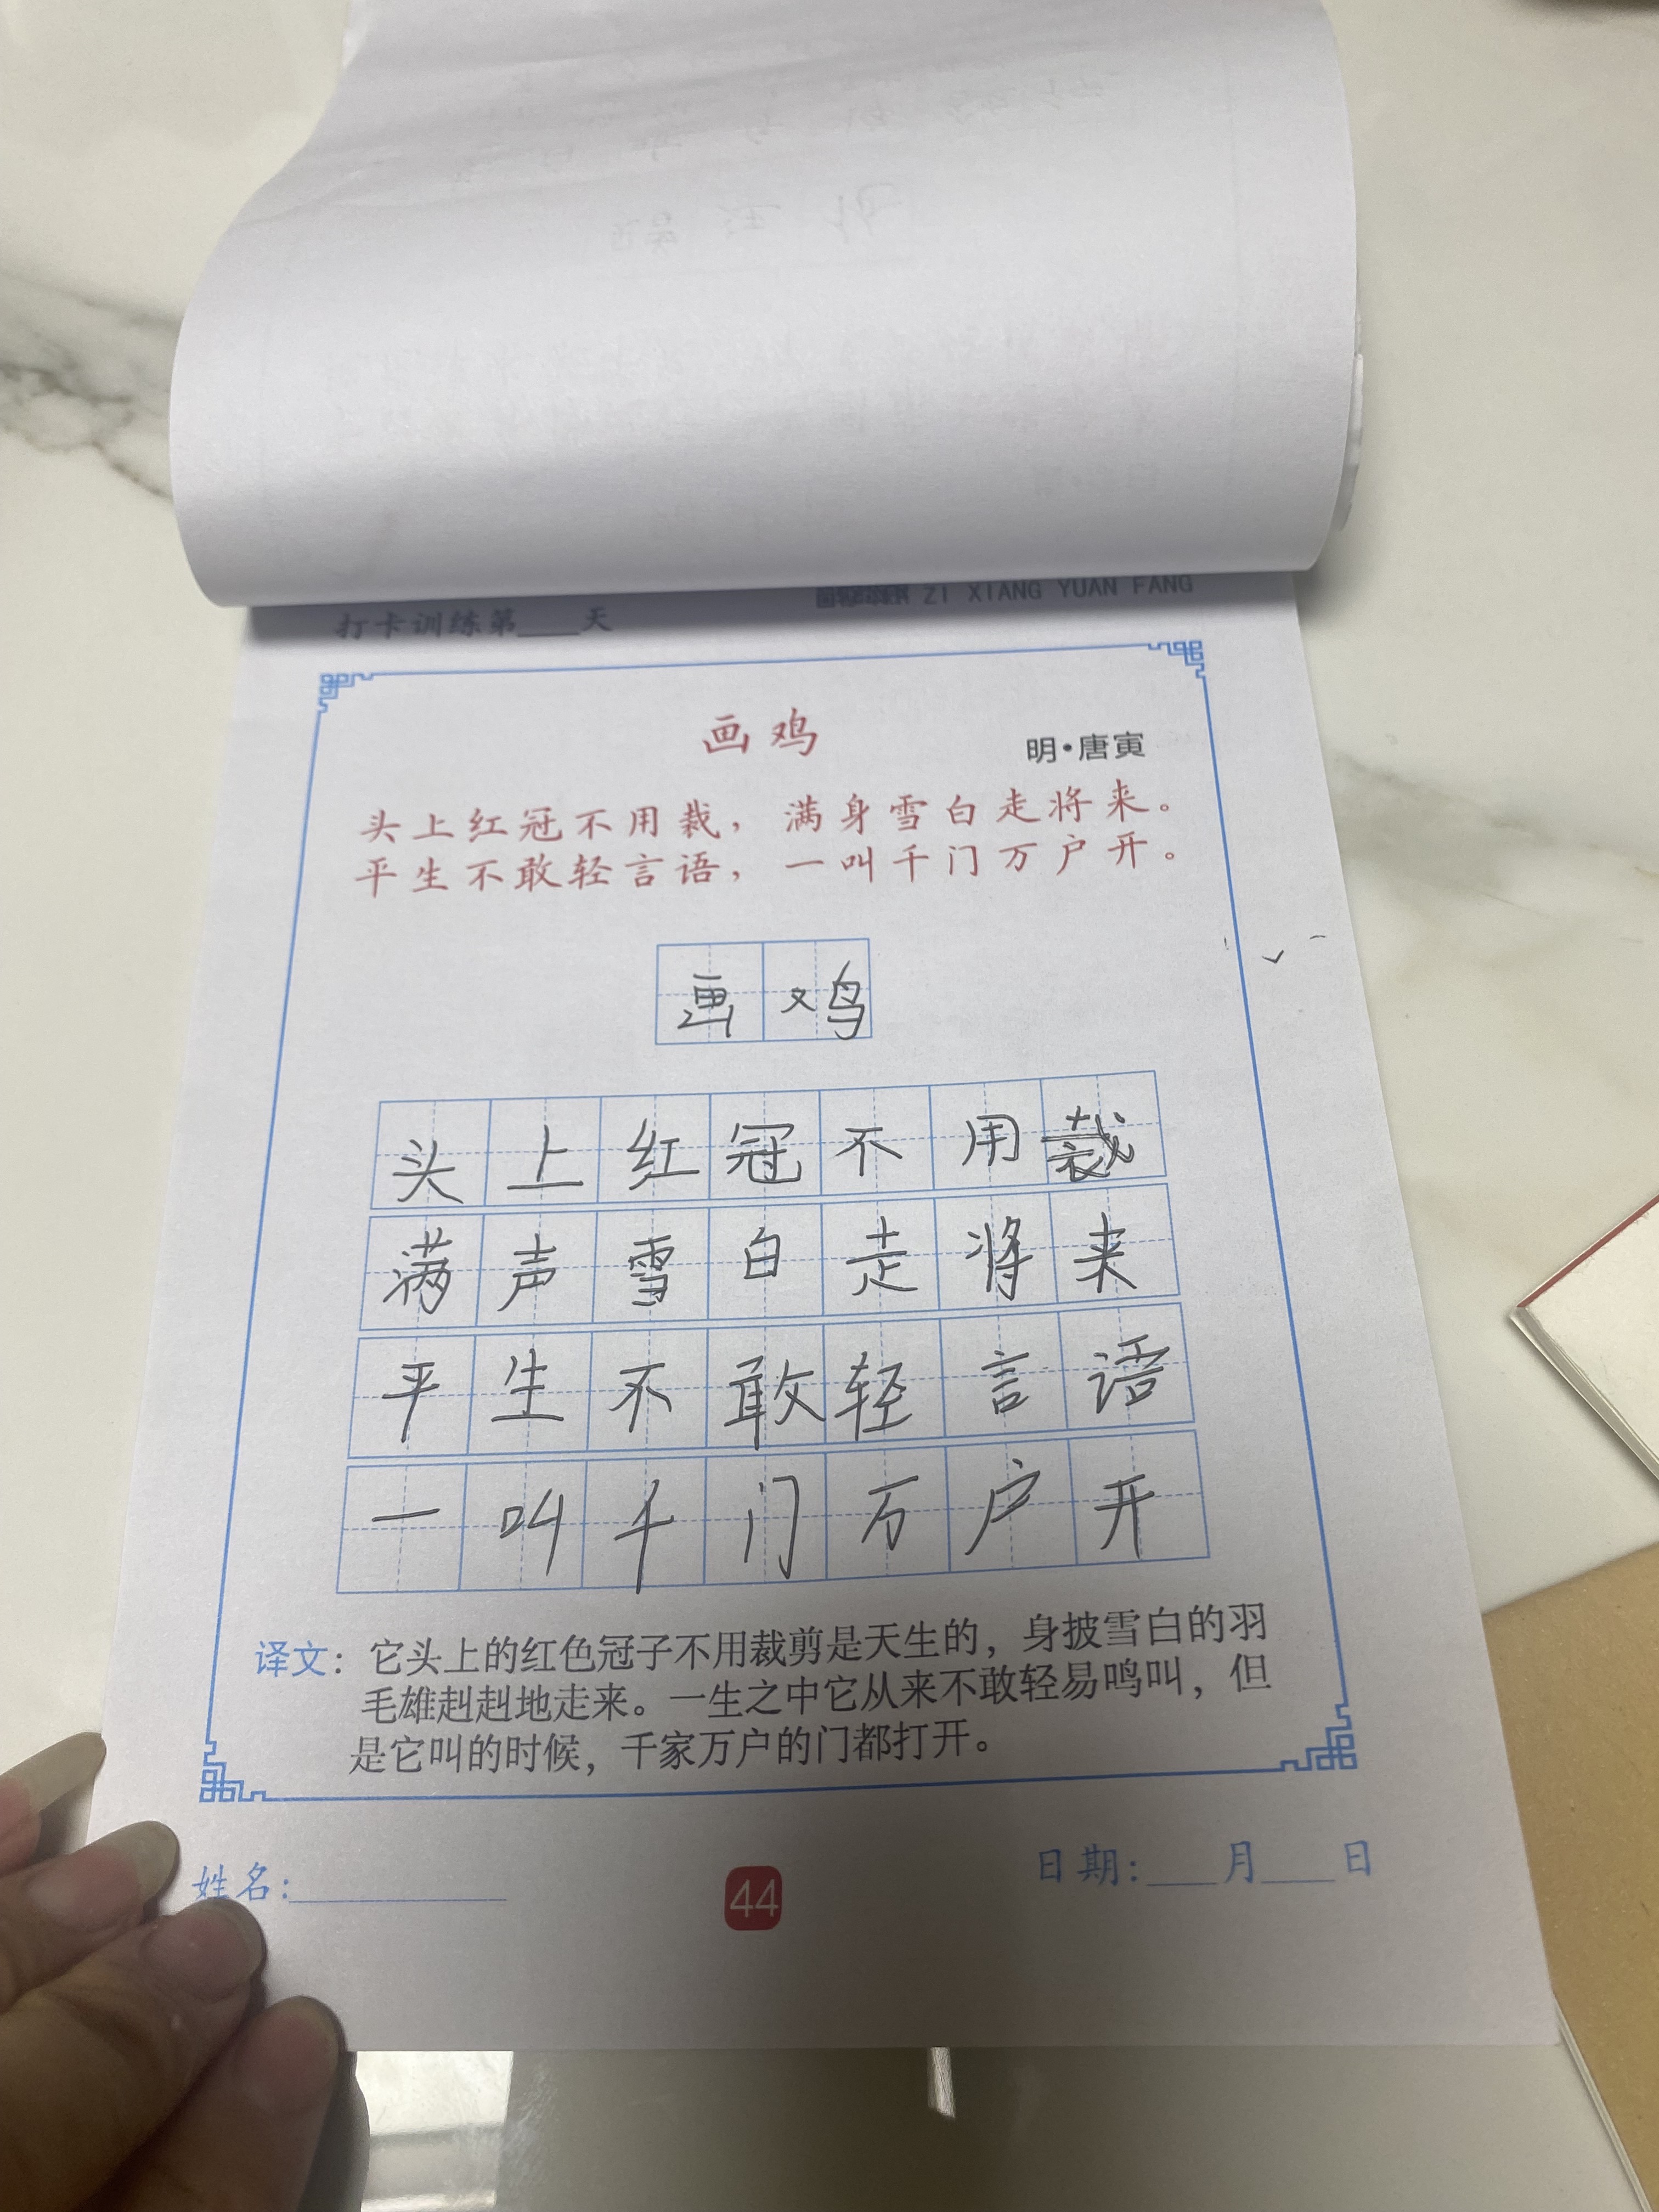 打卡训练第____天
ZI XIANG YUAN FANG
画鸡
明·唐寅
头上红冠不用裁，满身雪白走将来。
平生不敢轻言语，一叫千门万户开。
画鸡
头上红冠不用裁
满声雪白走将来
平生不敢轻言语
一叫千门万户开
译文：它头上的红色冠子不用裁剪是天生的，身披雪白的羽
毛雄赳赳地走来。一生之中它从来不敢轻易鸣叫，但
是它叫的时候，千家万户的门都打开。
姓名：__________
44
日期：___月___日